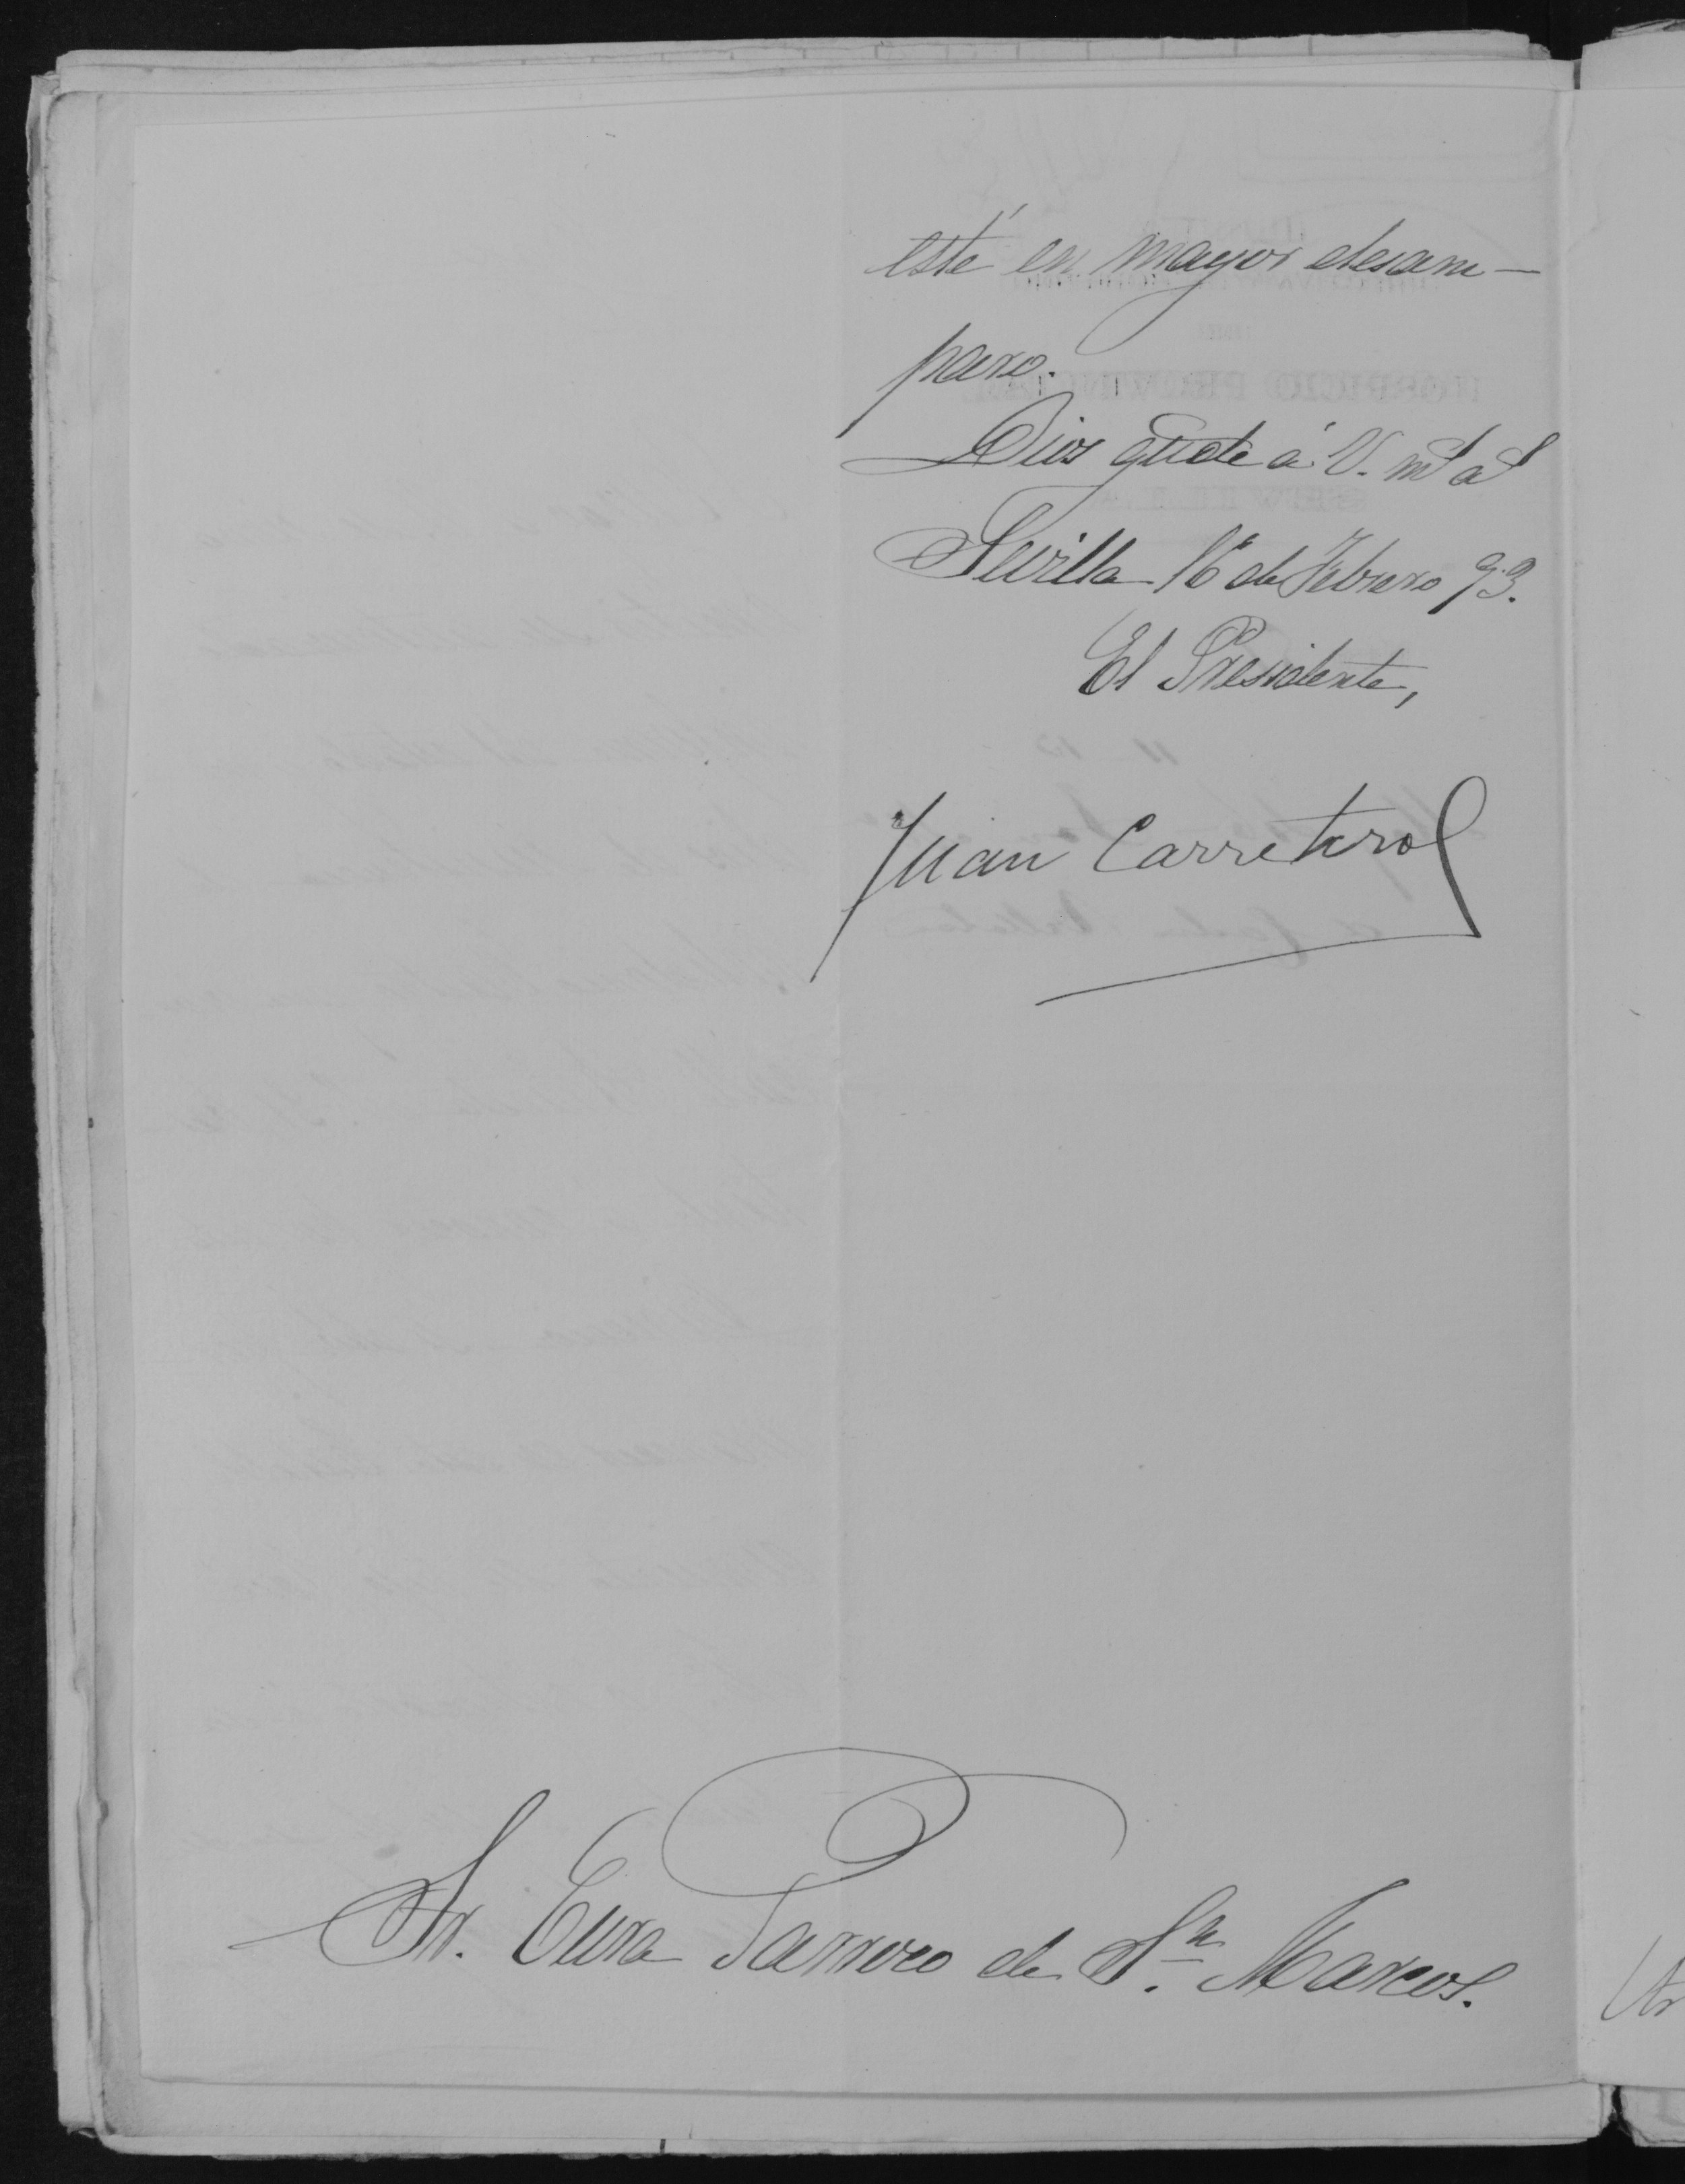 esté en mayor desam-
paro.
Dios gude á V. ms as
Sevilla 16 de Febrero 93.
El Presidente,
Juan Carretero
Sr. Cura Párroco de Sn. Marcos.